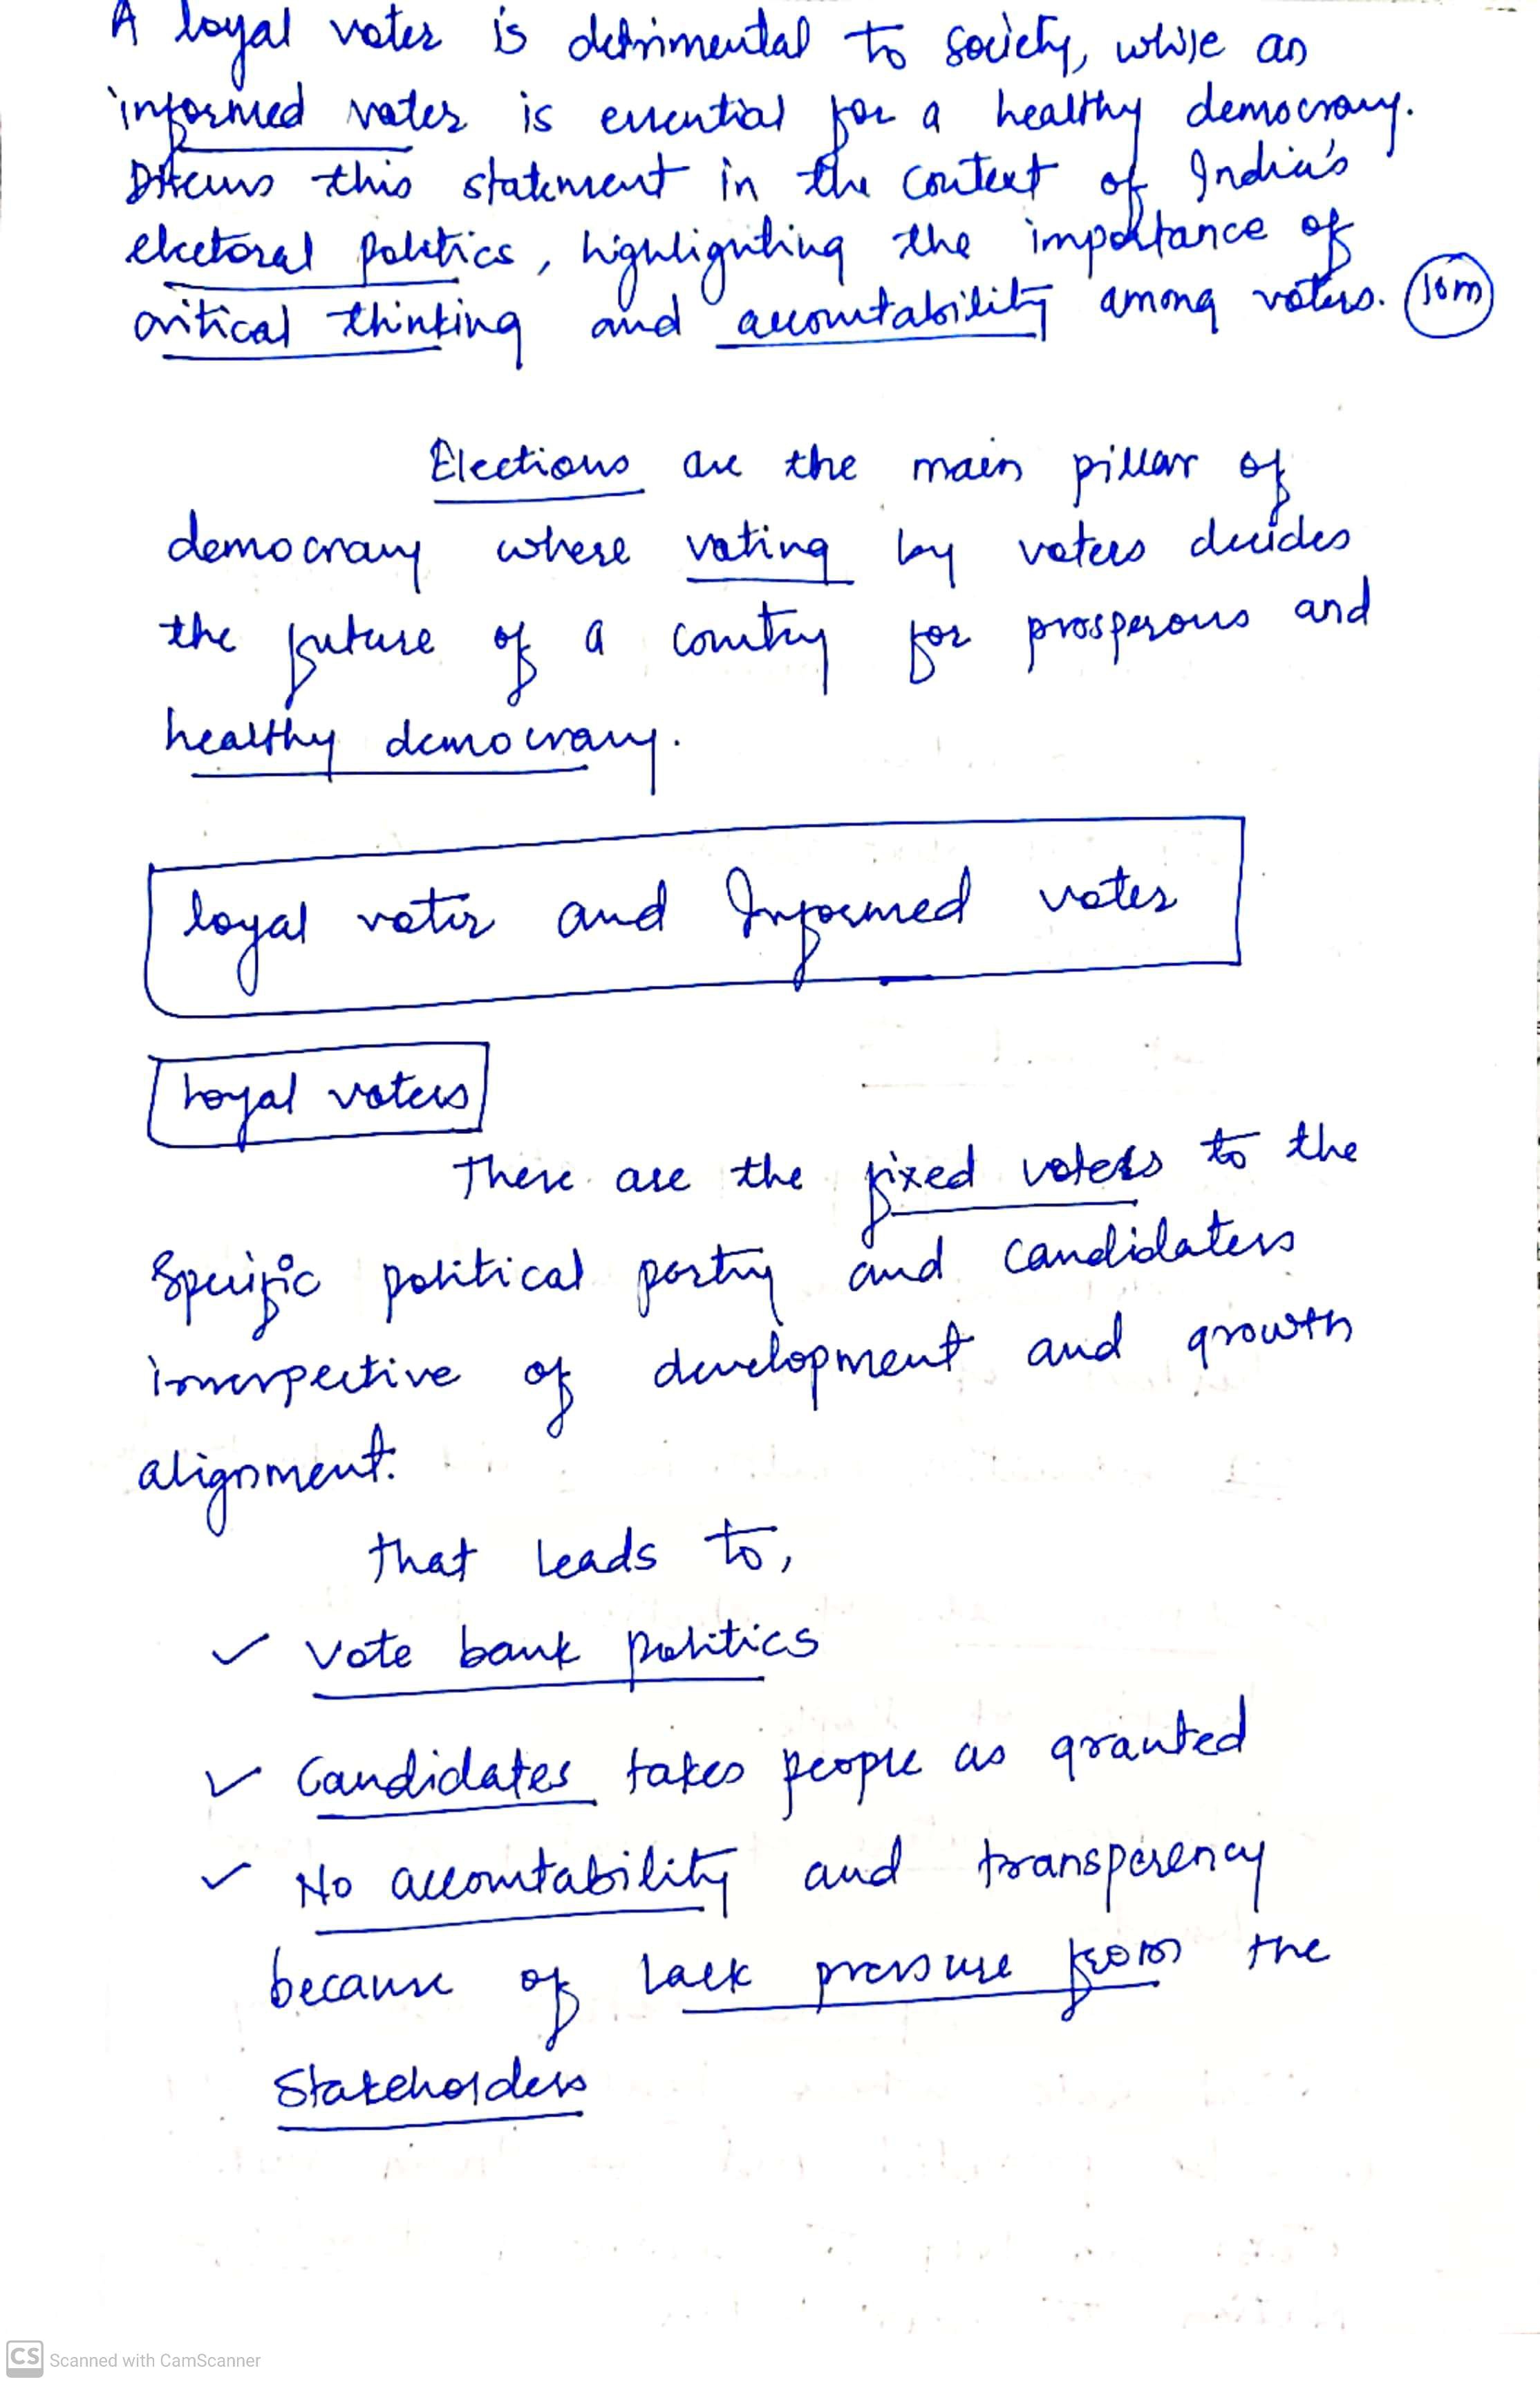 A loyal voter is detrimental to society, while an
informed voter is essential for a healthy democracy.
Discuss this statement in the context of India's
electoral politics, highlighting the importance of
critical thinking and accountability among voters. 10m
Elections are the main pillar of
democracy where voting by voters decides
the future of a country for prosperous and
healthy democracy.
loyal voter and Informed voter
Loyal voters
There are the fixed voters to the
Specific political party and candidaters
irrerspective of development and growth
alignment.
that leads to,
✓ Vote bank politics
✓ Candidates takes people as granted
✓ No accountability and transparency
because of lack pressure from the
Stakeholders
CS Scanned with CamScanner